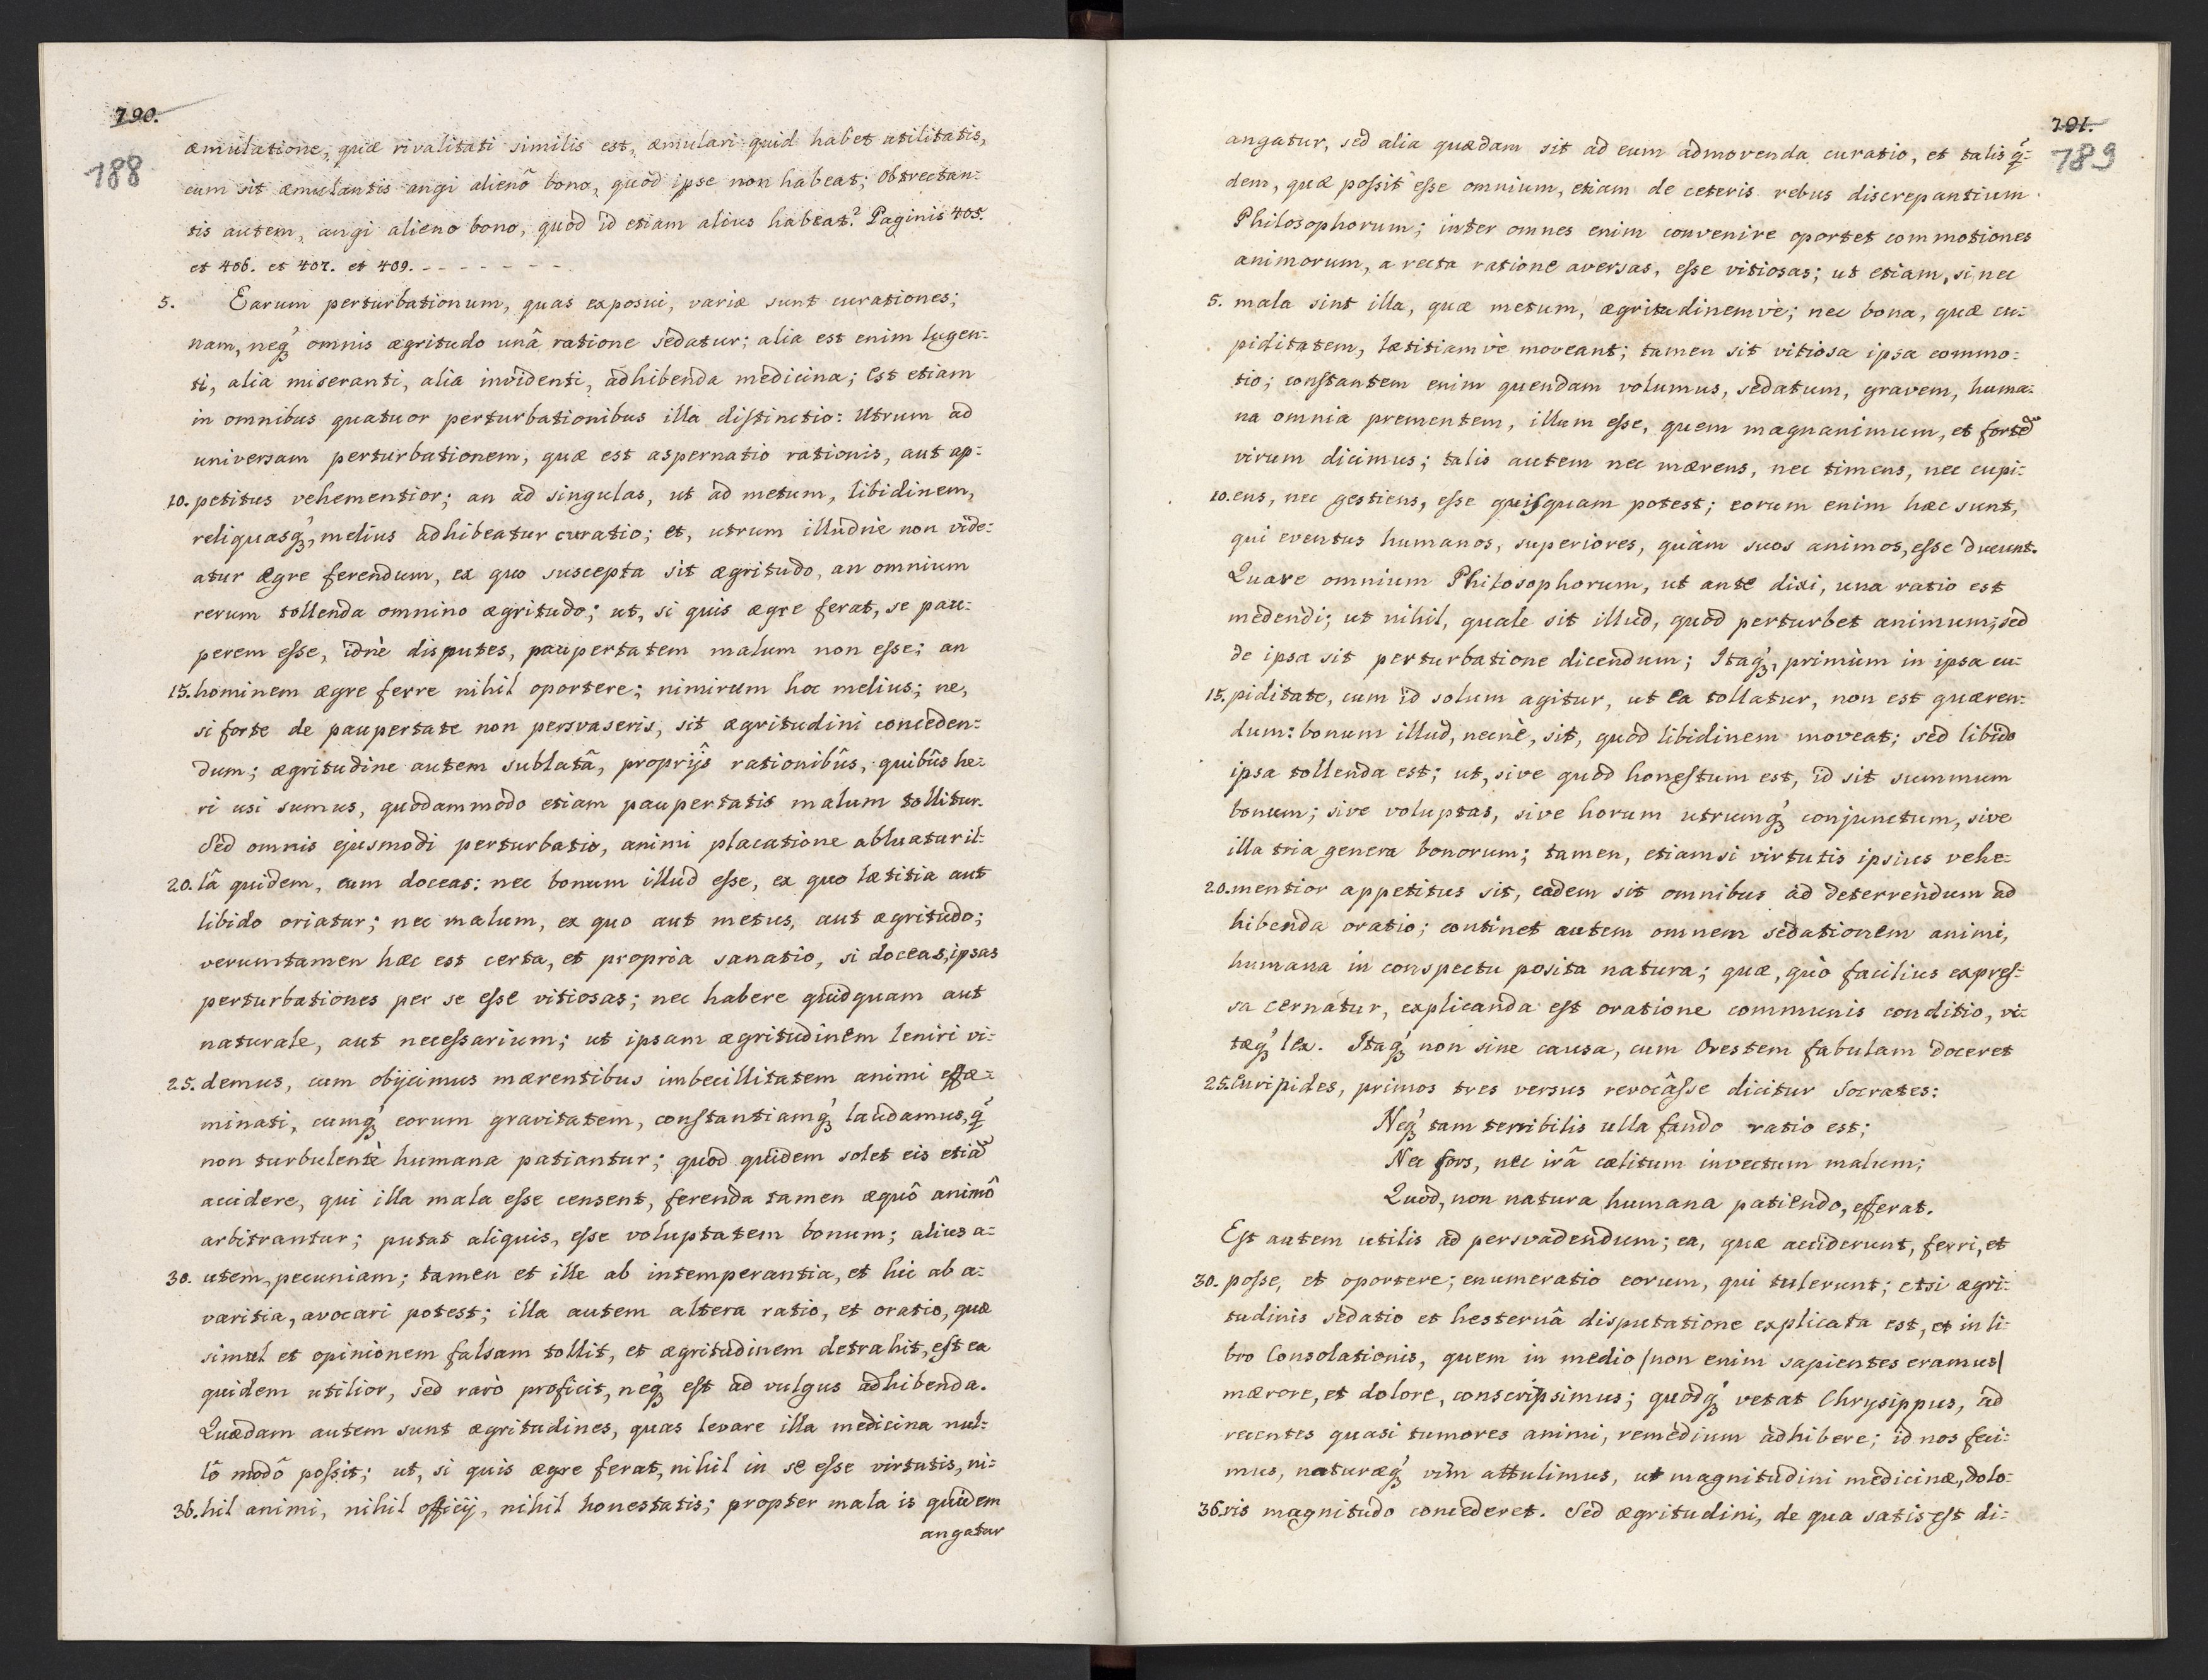 790.
188
æmulatione, quæ rivalitati similis est, æmulari quid habet utilitatis,
cum sit æmulantis angi alienô bono, quod ipse non habeat; Obtrectan=
tis autem, angi alieno bono, quod id etiam alius habeat? Paginis 405.
et 406. et 407. et 409. - - - - - - -
5. Earum perturbationum, quas exposui, variæ sunt curationes;
nam, neq́ꝫ omnis ægritudo unâ ratione sedatur; alia est enim lugen=
ti, alia miseranti, alia invidenti, adhibenda medicina; Est etiam
in omnibus quatuor perturbationibus illa distinctio: Utrum ad
universam perturbationem, quæ est aspernatio rationis, aut ap=
10. petitus vehementior; an ad singulas, ut ad metum, libidinem,
reliquasq́ꝫ, melius adhibeatur curatio; et, utrum illudnè non vide=
atur ægre ferendum, ex quo suscepta sit ægritudo, an omnium
rerum tollenda omnino ægritudo; ut, si quis ægre ferat, se pau=
perem esse, idnè disputes, paupertatem malum non esse; an
15. hominem ægre ferre nihil oportere; nimirum hoc melius; ne,
si forte de paupertate non persvaseris, sit ægritudini conceden=
dum; ægritudine autem sublatâ, proprijs̑ rationibûs, quibûs he=
ri usi sumus, quodammodo etiam paupertatis malum tollitur.
Sed omnis ejusmodi perturbatio, animi placatione abluatur il=
20. lâ quidem, cum doceas: nec bonum illud esse, ex quo lætitia aut
libido oriatur; nec malum, ex quo aut metus, aut ægritudo;
verumtamen hæc est certa, et propria sanatio, si doceas, ipsas
perturbationes per se esse vitiosas; nec habere quidquam aut
naturale, aut necessarium; ut ipsam ægritudinem leniri vi=
25. demus, cum obijcimus mærentibus imbecillitatem animi effæ=
minati, cumq́ꝫ eorum gravitatem, constantiamq́ꝫ laudamus, q̃
non turbulentè humana patiantur; quod quidem solet eis etiã
accidere, qui illa mala esse censent, ferenda tamen æquô animô
arbitrantur; putat aliquis, esse voluptatem bonum; alius a=
30. utem, pecuniam; tamen et ille ab intemperantia, et hic ab a=
varitia, avocari potest; illa autem altera ratio, et oratio, quæ
simul et opinionem falsam tollit, et ægritudinem detrahit, est ea
quidem utilior, sed rarò proficit, neq́ꝫ est ad vulgus adhibenda.
Quædam autem sunt ægritudines, quas levare illa medicina nul=
lô modô possit; ut, si quis ægre ferat, nihil in se esse virtutis, ni=
36. hil animi, nihil officij, nihil honestatis; propter mala is quidem
angatur
791.
789
angatur, sed alia quædam sit ad eum admovenda curatio, et talis q̃=
dem, quæ possit esse omnium, etiam de ceteris rebus discrepantium
Philosophorum; inter omnes enim convenire oportet commotiones
animorum, a recta ratione aversas, esse vitiosas; ut etiam, si nec
5. mala sint illa, quæ metum, ægritudinemvè; nec bona, quæ cu=
piditatem, lætitiamvè moveant; tamen sit vitiosa ipsa commo=
tio; constantem enim quendam volumus, sedatum, gravem, huma=
na omnia prementem, illum esse, quem magnanimum, et fortẽ
virum dicimus; talis autem nec mærens, nec timens, nec cupi=
10. ens, nec gestiens, esse quisquam potest; eorum enim hæc sunt,
qui eventus humanos, superiores, quàm suos animos, esse ducunt.
Quare omnium Philosophorum, ut ante dixi, una ratio est
medendi; ut nihil, quale sit illud, quod perturbet animum; sed
de ipsa sit perturbatione dicendum; Itaq́ꝫ, primùm in ipsa cu=
15. piditate, cum id solum agitur, ut ea tollatur, non est quæren=
dum: bonum illud, necnè, sit, quod libidinem moveat; sed libido
ipsa tollenda est; ut, sive quod honestum est, id sit summum
bonum; sive voluptas, sive horum utrumq́ꝫ conjunctum, sive
illa tria genera bonorum; tamen, etiamsi virtutis ipsius vehe=
20. mentior appetitus sit, eadem sit omnibus ad deterrendum ad
hibenda oratio; continet autem omnem sedationem animi,
humana in conspectu posita natura; quæ, quò facilius expres=
sa cernatur, explicanda est oratione communis conditio, vi=
tæq́ꝫ lex. Itaq́ꝫ non sine causa, cum Orestem fabulam doceret
25. Euripides, primos tres versus revocâsse dicitur Socrates:
Neq́ꝫ tam terribilis ulla fando ratio est;
Nec fors, nec irâ cælitum invectum malum;
Quod, non natura humana patiendo, efferat.
Est autem utilis ad persvadendum; ea, quæ acciderunt, ferri, et
30. posse, et oportere; enumeratio eorum, qui tulerunt; etsi ægri=
tudinis sedatio et hesternâ disputatione explicata est, et in li=
bro Consolationis, quem in medio /non enim sapientes eramus/
mærore, et dolore, conscripsimus; quodq́ꝫ vetat Chrysippus, ad
recentes quasi tumores animi, remedium adhibere; id nos feci=
mus, naturæq́ꝫ vim attulimus, ut magnitudini medicinæ, dolo=
36. ris magnitudo concederet. Sed ægritudini, de qua satis est di=